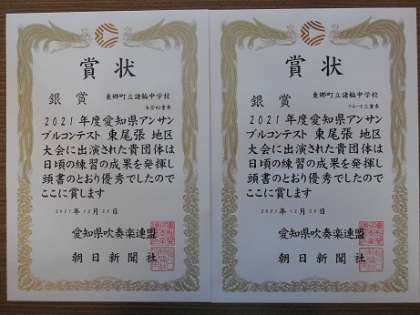 賞状
銀賞
東郷町立諸輪中学校
2021年度愛知県アンサン
ブルコンテスト 東尾張 地区
大会に出演された貴団体は
日頃の練習の成果を発揮し
頭書のとおり優秀でしたので
ここに賞します
愛知県吹奏楽連盟
朝日新聞社
賞状
銀賞
東郷町立諸輪中学校
2021年度愛知県アンサン
ブルコンテスト 東尾張 地区
大会に出演された貴団体は
日頃の練習の成果を発揮し
頭書のとおり優秀でしたので
ここに賞します
愛知県吹奏楽連盟
朝日新聞社